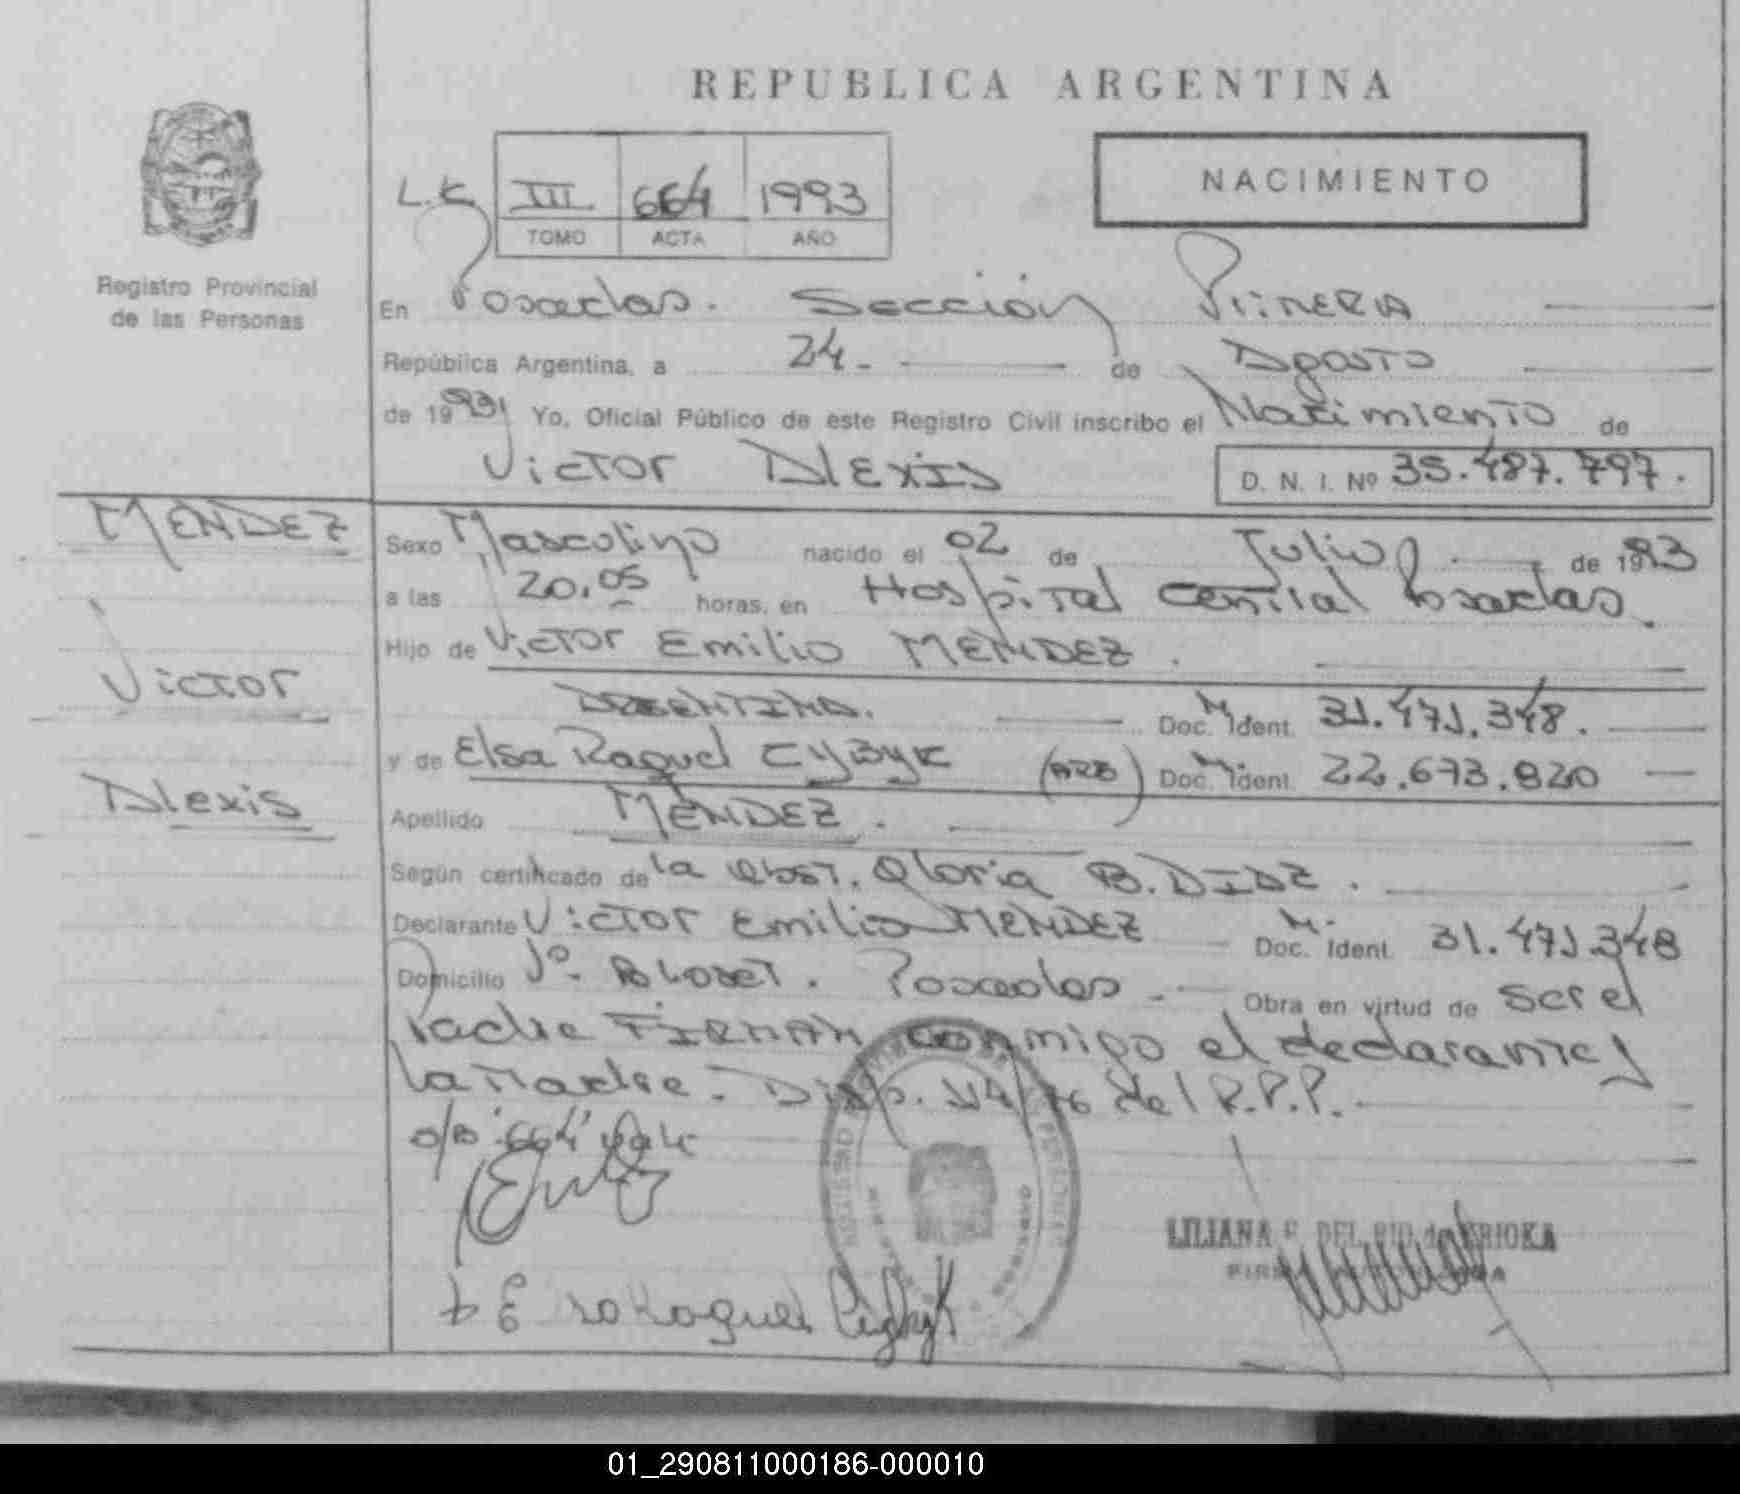 REPUBLICA ARGENTINA
NACIMIENTO
III 664 1993
TOMO ACTA AÑO
Registro Provincial
de las Personas
En Posadas. Sección Primera
República Argentina, a 24.- de Agosto
de 1993, Yo, Oficial Público de este Registro Civil inscribo el Nacimiento de
Victor Alexis D. N. I. Nº 35.487.797.
MENDEZ
Victor
Alexis
Sexo Masculino nacido el 02 de Julio de 1993
a las 20.05 horas, en Hospital Central Posadas.
Hijo de Victor Emilio MENDEZ.
ARGENTINA. Doc. M. Ident. 31.471.348.
y de Elsa Raquel CYBYK (ARG) Doc. M. Ident. 22.673.820
Apellido MENDEZ.
Según certificado de la Obst. Gloria B. DIAZ.
Declarante Victor Emilio MENDEZ Doc. M. Ident. 31.471.348
Domicilio Posadas.- Obra en virtud de ser el
Padre FIRMAN conmigo el declarante y
la Madre. Disp. 114/76 del R.P.P.
s/b "664" Vale
LILIANA DEL RIO de
01_290811000186-000010